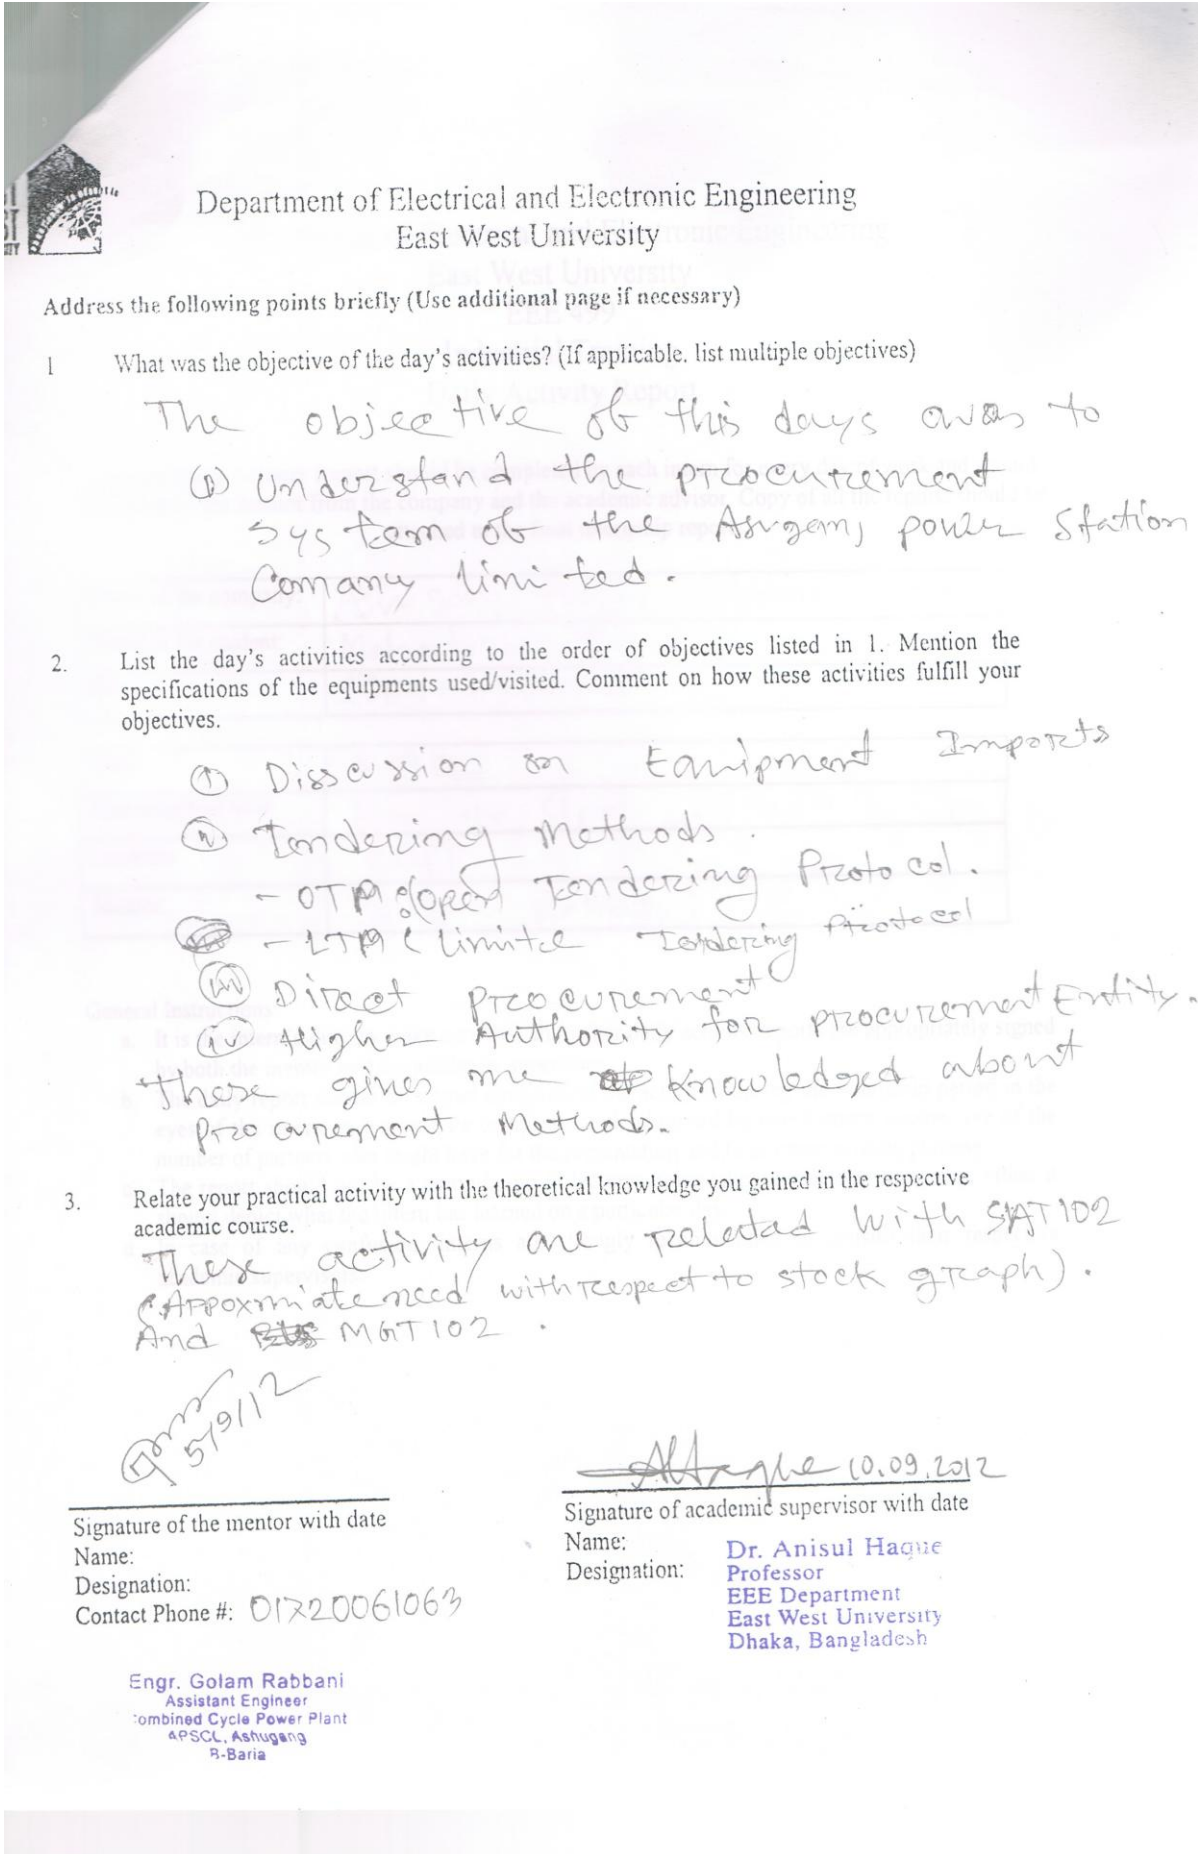 Department of Electrical and Electronic Engineering
East West University
Address the following points briefly (Use additional page if necessary)
1 What was the objective of the day's activities? (If applicable. list multiple objectives)
The objective of this days to
(i) Understand the procurement
System of the power Station
Comany limited.
2. List the day's activities according to the order of objectives listed in 1. Mention the
specifications of the equipments used/visited. Comment on how these activities fulfill your
objectives.
(i) Disscussion on Equipment Imports
(ii) Tendering Methods.
- OTM :(open Tendering Protocol.
- LTM (limite Tendering Protocol
(iii) Direct Procurement
(iv) Higher Authority for procurement Entity.
These gives me knowledged about
procurement Methods.
3. Relate your practical activity with the theoretical knowledge you gained in the respective
academic course.
These activity are related with STAT102
(Appoxmiate need with respect to stock graph).
And MGT102.
5/9/12
10.09.2012
Signature of the mentor with date
Name:
Designation:
Contact Phone #: 01720061063
Engr. Golam Rabbani
Assistant Engineer
ombined Cycle Power Plant
APSCL, Ashugang
B-Baria
Signature of academic supervisor with date
Name:
Designation:
Dr. Anisul Haque
Professor
EEE Department
East West University
Dhaka, Bangladesh